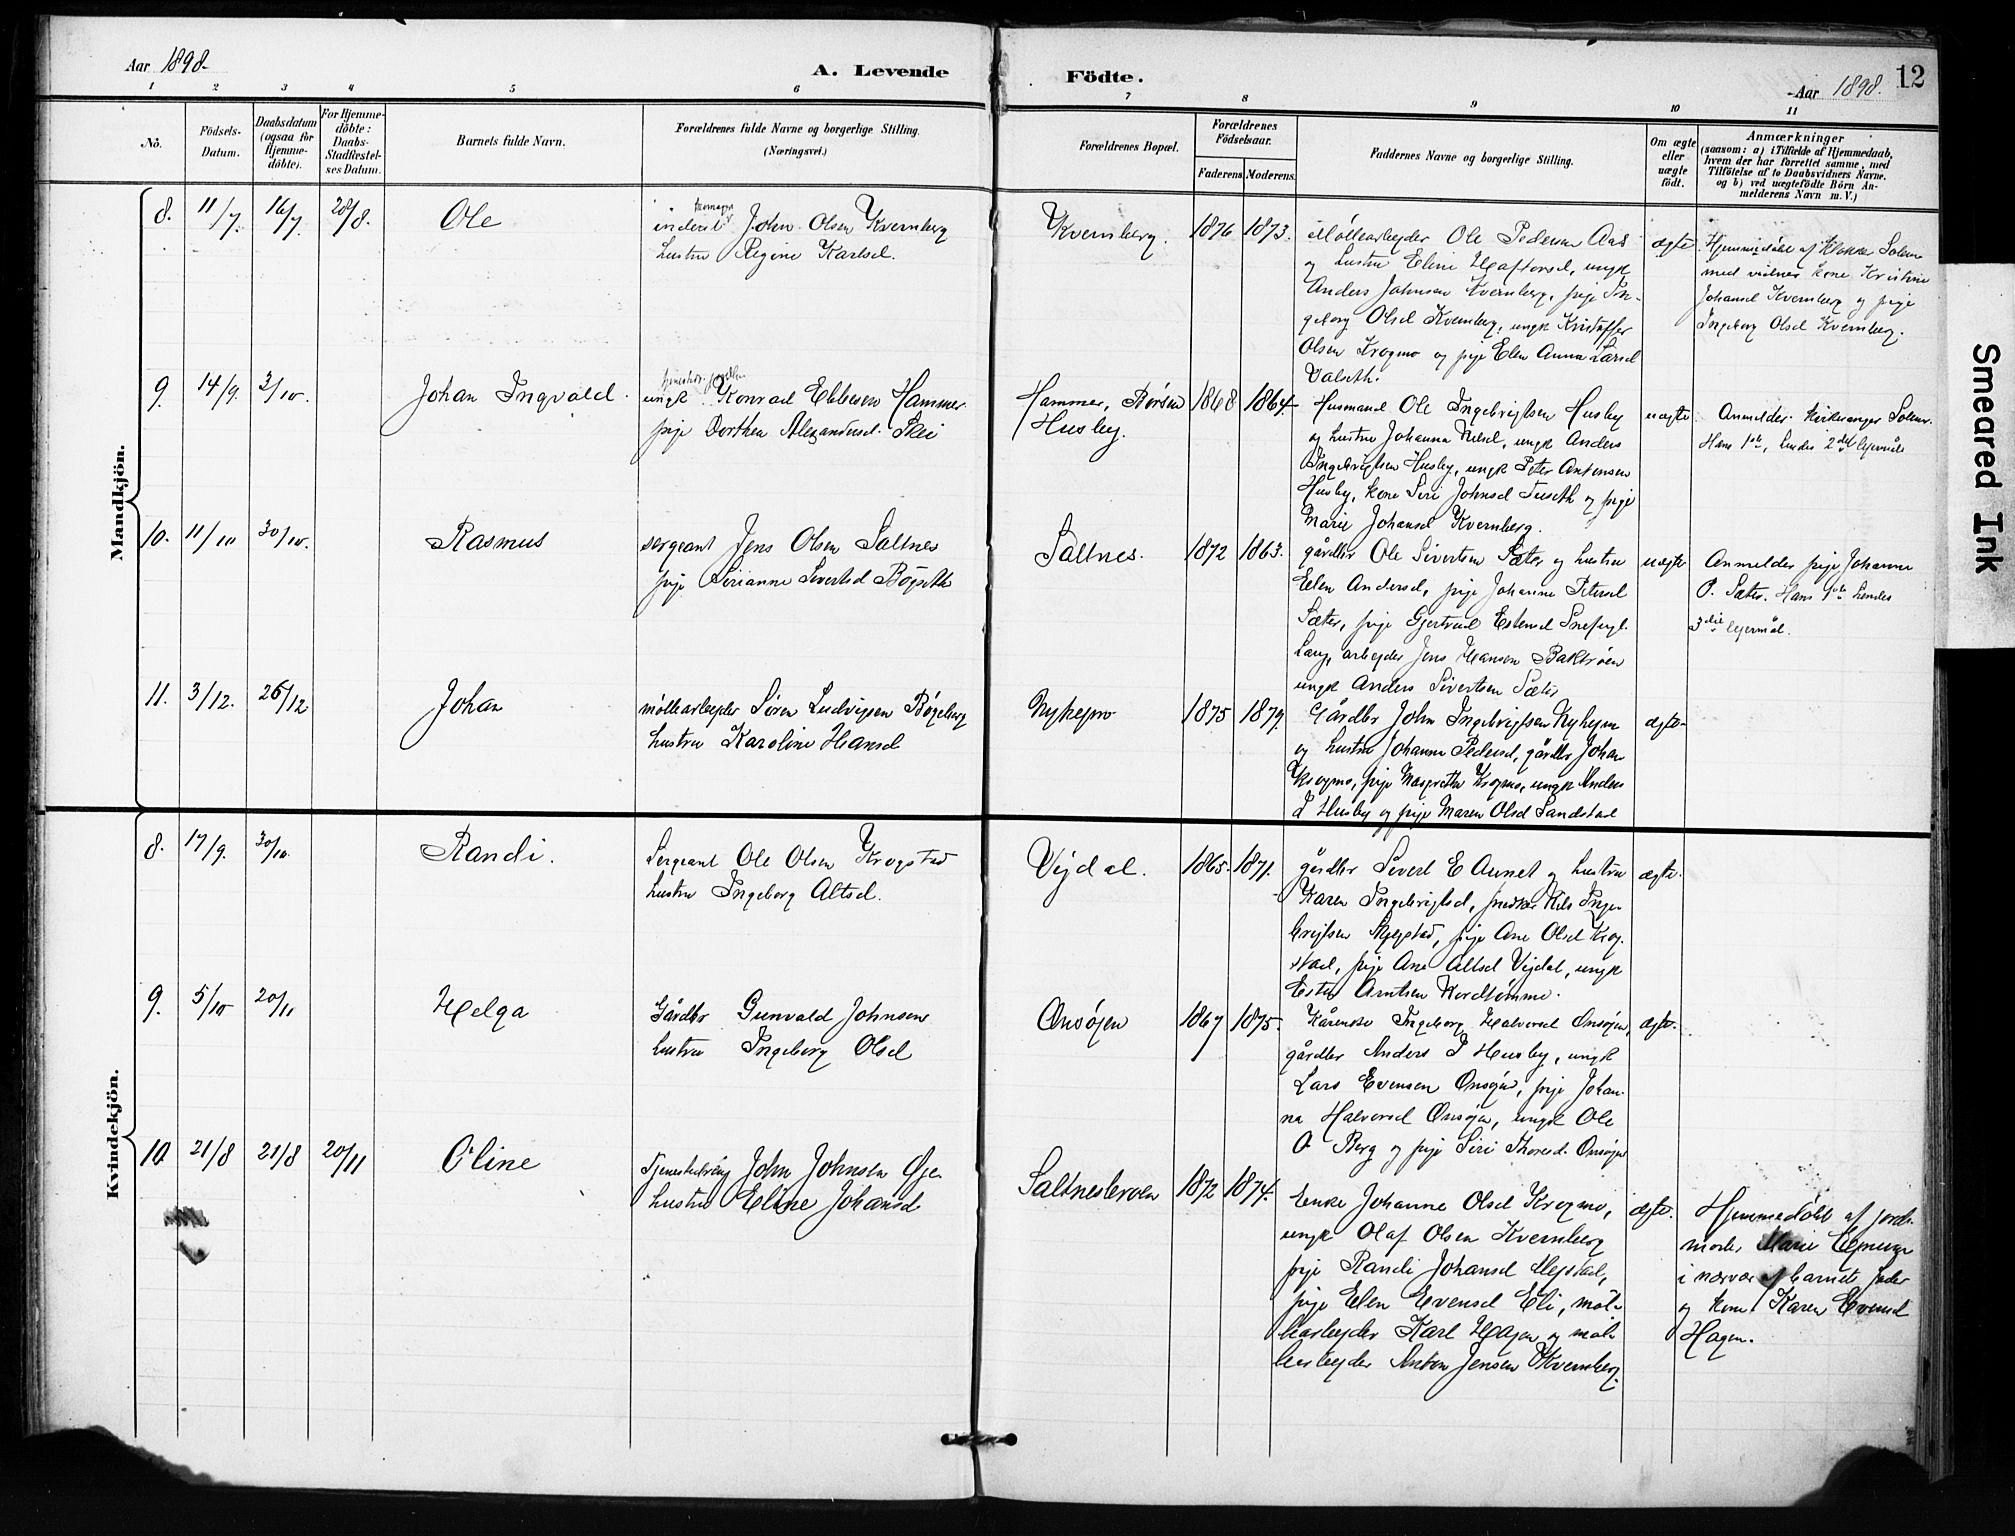 Aar 1898.
A. Levende
Födte.
Aar 1898.
12
1 2 3 4 5 6 7 8 9 10 11
Nö.
Födsels-
Datum.
Daabsdatum
(ogsaa for
Hjemme-
döbte).
For Hjemme-
döbte:
Daabs-
Stadfæstel-
ses Datum.
Barnets fulde Navn.
Forældrenes fulde Navne og borgerlige Stilling.
(Næringsvei.)
Forældrenes Bopæl.
Forældrenes
Födselsaar.
Faderens. Moderens.
Faddernes Navne og borgerlige Stilling.
Om ægte
eller
uægte
födt.
Anmærkninger
(saasom: a) i Tilfælde af Hjemmedaab,
hvem der har forrettet samme, med
Tilföielse af to Daabsvidners Navne.
og b) ved uægtefödte Börn An-
melderens Navn m. V.)
Mandkjön.
8. 11/7. 16/7. 28/8. Ole
inderst John Olsen Kvernberg
hustru Regine Karlsd.
Kvernberg. 1876 1873.
Møllearbejder Ole Pedersen Aas
og hustru Eline Haftorsd, ungk
Anders Johnsen Kvernberg, pige In-
geborg Olsd Kvernberg, ungk Kristoffer
Olsen Krogmo og pige Elen Anna Larsd
Valseth.
ægte
Hjemmedøbt af Klokker Solem
med vidner kone Kristine
Johansd Kvernberg og pige
Ingeborg Olsd Kvernberg.
9. 14/9. 3/10. Johan Ingvald.
ungk. Konrad Ebbesen Hammer
pige Dorthea Alexandersd. Skei
Hammer, Børsen
Husby.
1868 1864
Husmand Ole Ingebrigtsen Husby
og hustru Johanna Nilsd, ungk Anders
Ingebrigtsen Husby, ungk Peter Antonsen
Husby, kone Siri Johnsd Tuseth og pige
Marie Johansd Kvernberg.
uægte
Anmelder Kirkesanger Solem.
Hans 1ste, hendes 2det lejermål
10. 11/10 30/10. Rasmus
sergeant Jens Olsen Saltnes
pige Sirianne Sivertsd Bøseth
Saltnes. 1872 1863.
gårdbr Ole Sivertsen Sæter og hustru
Elen Andersd, pige Johanna Petersd
Sæter, pige Gjertrud Estensd Snefugl
Lang, arbejder Jens Hansen Bakkrøen
ungk Anders Sivertsen Sæter
uægte
Anmelder pige Johanne
P. Sæter. Hans 1ste hendes
3die lejermål.
11. 3/12. 26/12 Johan
møllearbejder Søren Ludvigsen Bøgeberg
hustru Karoline Hansd
Nyhejm 1875 1879.
Gårdbr John Ingebrigtsen Nyhejm
og hustru Johanna Pedersd, gårdbr Johan
Krogmo, pige Margrethe Krogmo, ungk Anders
I Husby og pige Maren Olsd Sandstad
ægte
Kvindekjön.
8. 17/9. 30/10. Randi.
Sergeant Ole Olsen Krogstad
hustru Ingeborg Altsd.
Vejdal. 1865. 1871.
gårdbr Sivert E Aunet og hustru
Karen Ingebrigtsd, Nils Inge-
brigtsen Mejstad, pige Ane Olsd Krog-
stad, pige Ane Altsd Vejdal, ungk
Esten Arntsen Nordtømme.
ægte.
9. 5/10 20/11 Helga
Gårdbr Gunvald Johnsen
hustru Ingeborg Olsd
Onsøjen 1867 1875.
Kårenke Ingeborg Halvorsd Onsøjen,
gårdbr Anders I Husby, ungk
Lars Evensen Onsøjen, pige Johan-
na Halvorsd Onsøjen, ungk Ole
O Berg og pige Siri Thoresd. Onsøjen
ægte.
10 21/8 21/8 20/11 Oline
Tjenestedreng John Johnsen Øje
hustru Eline Johansd
Saltnesleren 1872 1874.
Enke Johanne Olsd Krogmo,
ungk Olaf Olsen Kvernberg
pige Randi Johansd Mejstad,
pige Elen Evensd Eli, møl-
learbejder Karl Hagen og møl-
learbejder Anton Jensen Kvernberg.
ægte.
Hjemmedøbt af jord-
moder Marie
i nærvær af barnets fader
og kone Karen Evensd
Hagen.
Smeared Ink